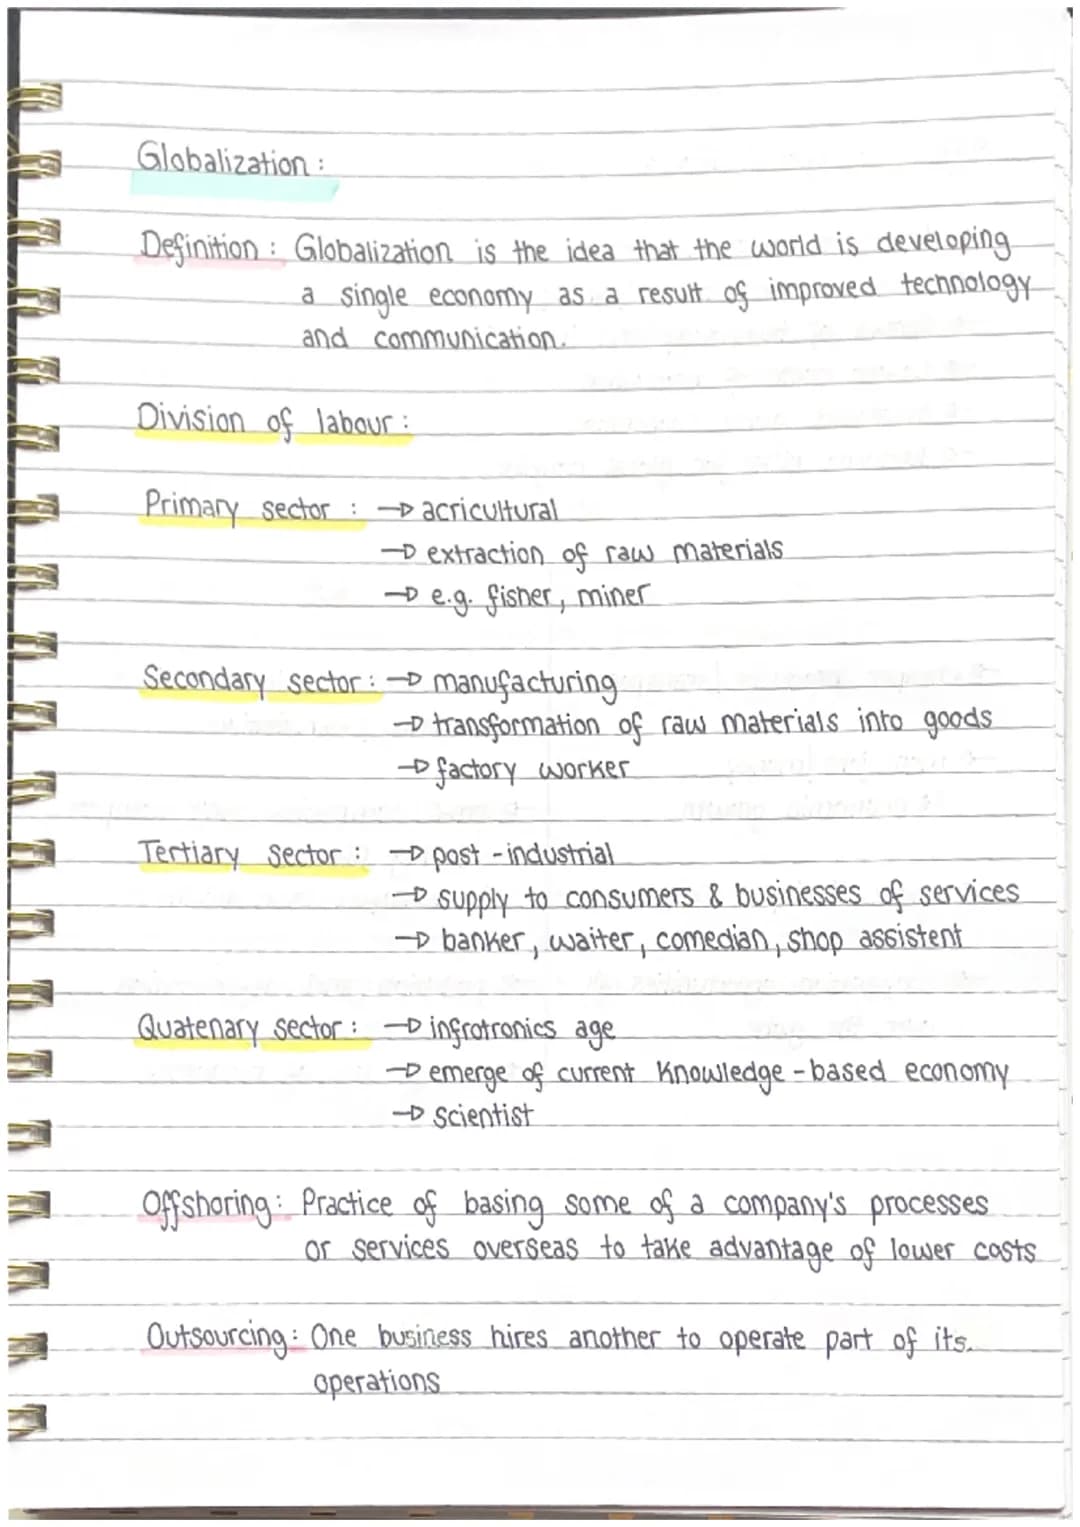 Globalization :
Definition : Globalization is the idea that the world is developing
a single economy as a result of improved technology
and communication.
Division of labour :
Primary sector : → acricultural
→ extraction of raw materials
→ e.g. fisher, miner
Secondary sector : → manufacturing
→ transformation of raw materials into goods
→ factory worker
Tertiary Sector : → post - industrial
→ supply to consumers & businesses of services
→ banker, waiter, comedian, shop assistent
Quatenary sector : → infrotronics age
→ emerge of current knowledge - based economy
→ scientist
Offshoring : Practice of basing some of a company's processes
or services overseas to take advantage of lower costs
Outsourcing : One business hires another to operate part of its.
operations